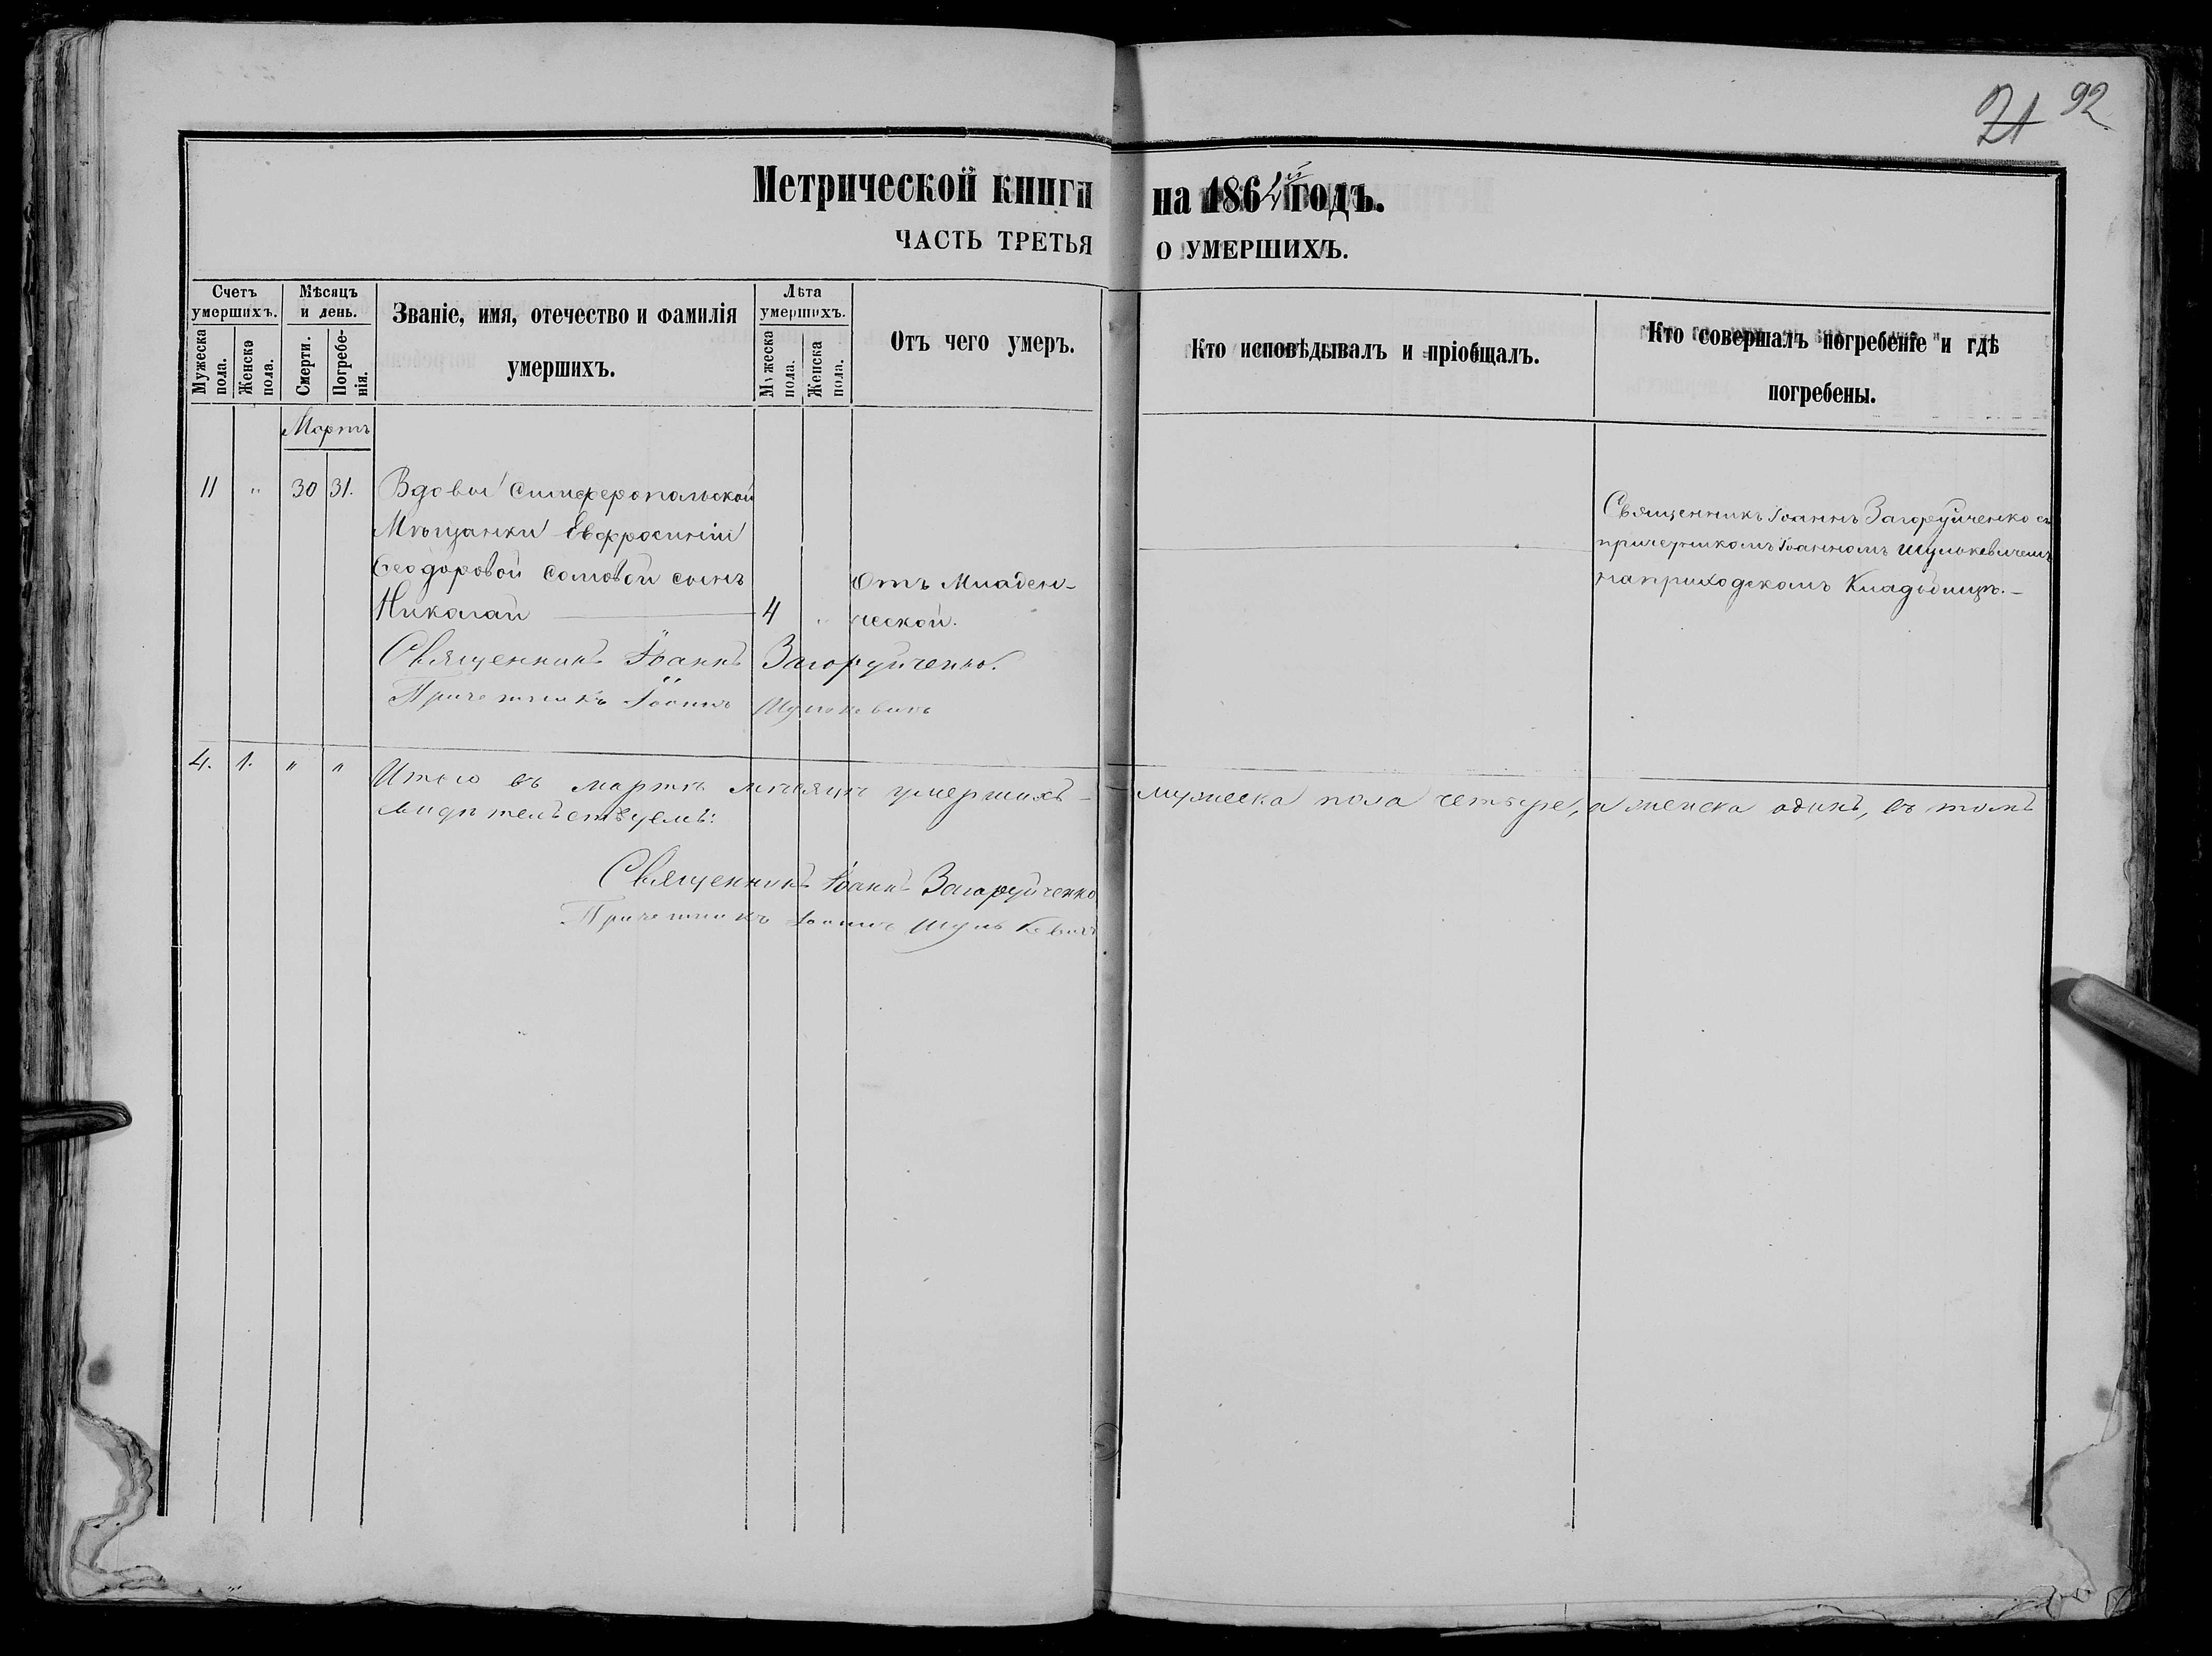 21 92
Метрической книги на 1864й годъ.
ЧАСТЬ ТРЕТЬЯ О УМЕРШИХЪ.
Счетъ умершихъ.
Мужеска пола.
Женска пола.
Мѣсяцъ и день.
Смерти.
Погребенія.
Званіе, имя, отечество и фамилія
умершихъ.
Лѣта умершихъ.
Мужеска пола.
Женска пола.
Отъ чего умеръ.
Кто исповѣдывалъ и пріобщалъ.
Кто совершалъ погребеніе и гдѣ
погребены.
Мартъ
11 " 30 31. Вдовы Симферопольской
Мѣщанки Евфросиніи
Ѳеодоровой Сомовой сынъ
Николай 4 "
Отъ Младен-
ческой.
Священникъ Іоаннъ Загоруйченко съ
причетникомъ Іоанномъ Шулькевичемъ
на приходскомъ Кладбищѣ.–
Священникъ Іоаннъ Загоруйченко.
Причетникъ Іоаннъ Шулькевичъ
4. 1. " " Итого въ мартѣ мѣсяцѣ умершихъ – мужеска пола четыре, а женска одинъ, въ томъ
Священникъ Іоаннъ Загоруйченко
Причетникъ Іоаннъ Шулькевичъ